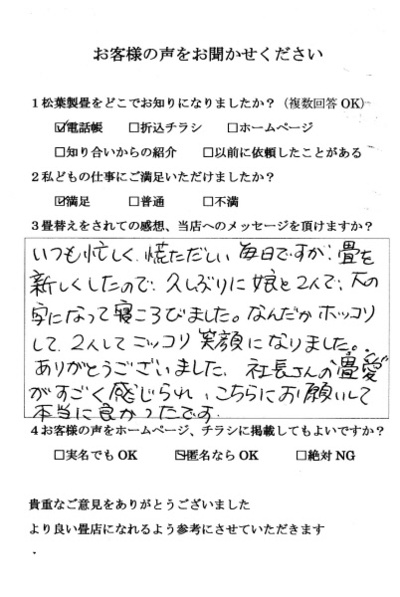 お客様の声をお聞かせください
1松葉製畳をどこでお知りになりましたか?(複数回答OK)
☑電話帳 □折込チラシ □ホームページ
□知り合いからの紹介 □以前に依頼したことがある
2私どもの仕事にご満足いただけましたか?
☑満足 □普通 □不満
3畳替えをされての感想、当店へのメッセージを頂けますか?
いつも忙しく、慌ただしい毎日ですが、畳を
新しくしたので、久しぶりに娘と2人で、大の
字になって寝ころびました。なんだかホッコリ
して、2人してニッコリ笑顔になりました。
ありがとうございました。社長さんの"畳愛"
がすごく感じられ、こちらにお願いして
本当に良かったです。
4お客様の声をホームページ、チラシに掲載してもよいですか?
□実名でもOK ☑匿名ならOK □絶対NG
貴重なご意見をありがとうございました
より良い畳店になれるよう参考にさせていただきます